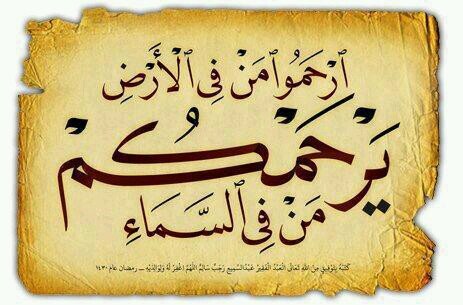 ٱرْحَمُوا۟ مَنْ فِى ٱلْأَرْضِ
يَرْحَمْكُمْ
مَنْ فِى ٱلسَّمَاءِ
كَتَبَهُ بِتَوْفِيقٍ مِنَ اللهِ تَعَالَى الْعَبْدُ الْفَقِيرُ عَبْدُالسَّمِيع رَجَبْ سَالِمْ اللَّهُمَّ اغْفِرْ لَهُ وَلِوَالِدَيْهِ – رمضان عام ١٤٣٠